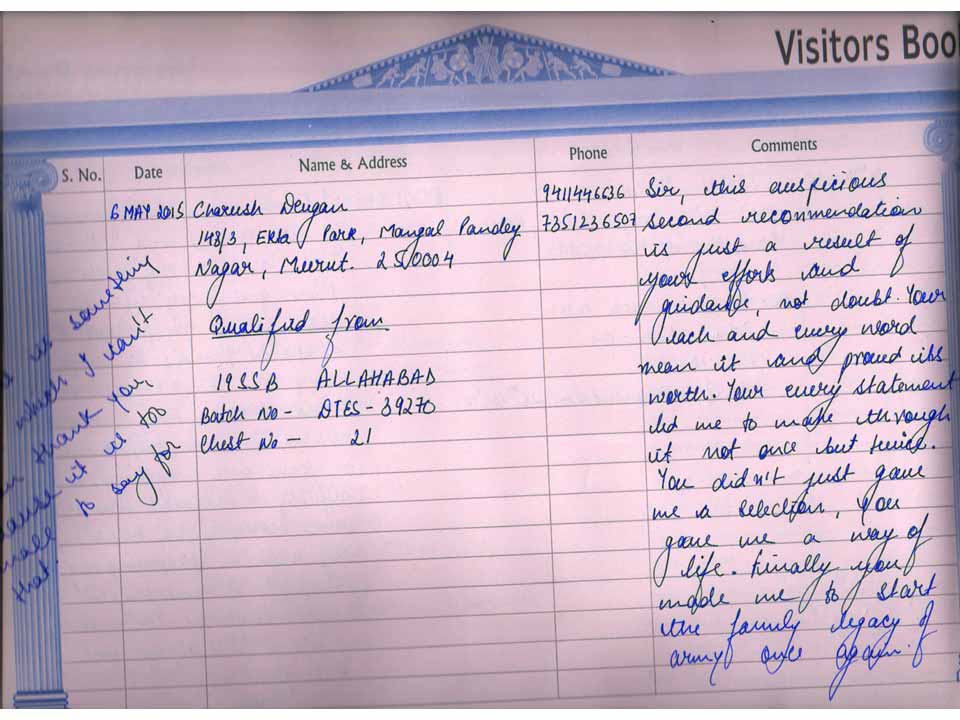 Visitors Boo
S. No. Date Name & Address Phone Comments
6 MAY 2015
Charush Deugan
148/3, Ekta Park, Mangal Pandey
Nagar, Meerut. 250004
Qualified from
19 SSB ALLAHABAD
Batch No - DTES - 39270
Chest No - 21
9411446636
7351236507
Sir, this auspicious
second recommendation
is just a result of
yours efforts and
guidance, not doubt. Your
each and every word
mean it and proved its
worth. Your every statement
led me to make through
it not once but twice.
You didn't just gave
me a selection, you
gave me a way of
life. Finally you
made me to start
the family legacy of
army once again.
is something
which I can't
thank you,
cause it is too
small to say for
that.